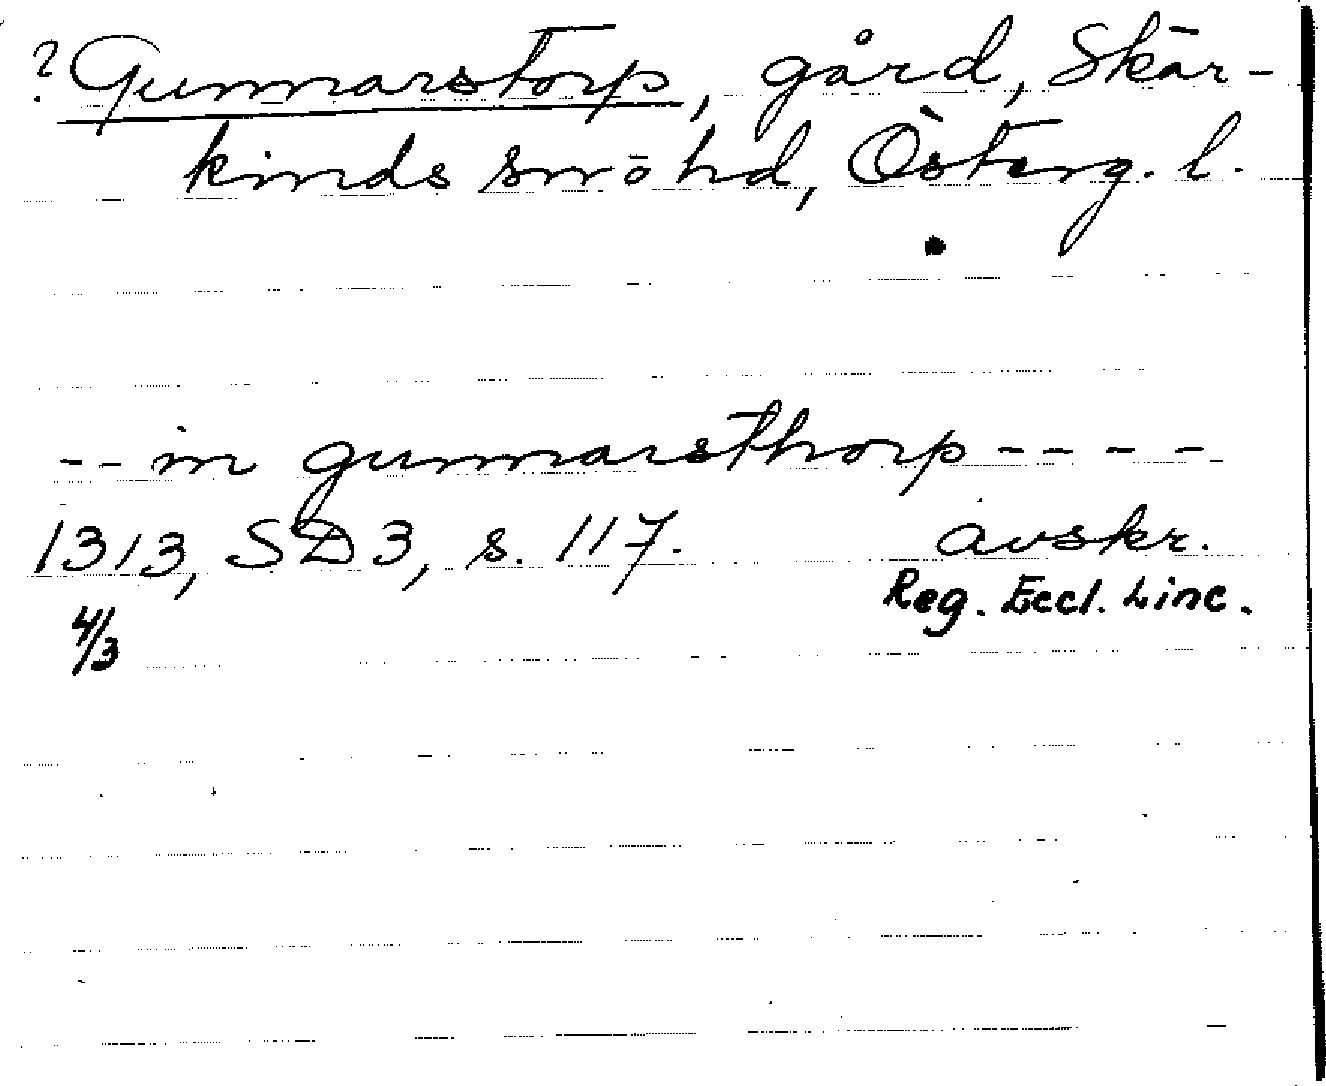 ? Gunnarstorp, gård, Skär-
kinds sn o hd, Österg. l.
-- in gunnarsthorp ----
1313, SD3, s. 117. avskr.
Reg. Eccl. Linc.
4/3